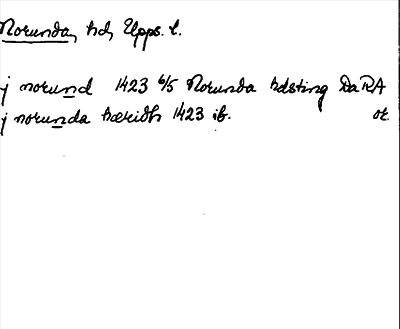 Norunda, hd, Upps. l.
j norund 1423 6/5 Norunda hdsting DaRA
j norunda hæridh 1423 ib. or.